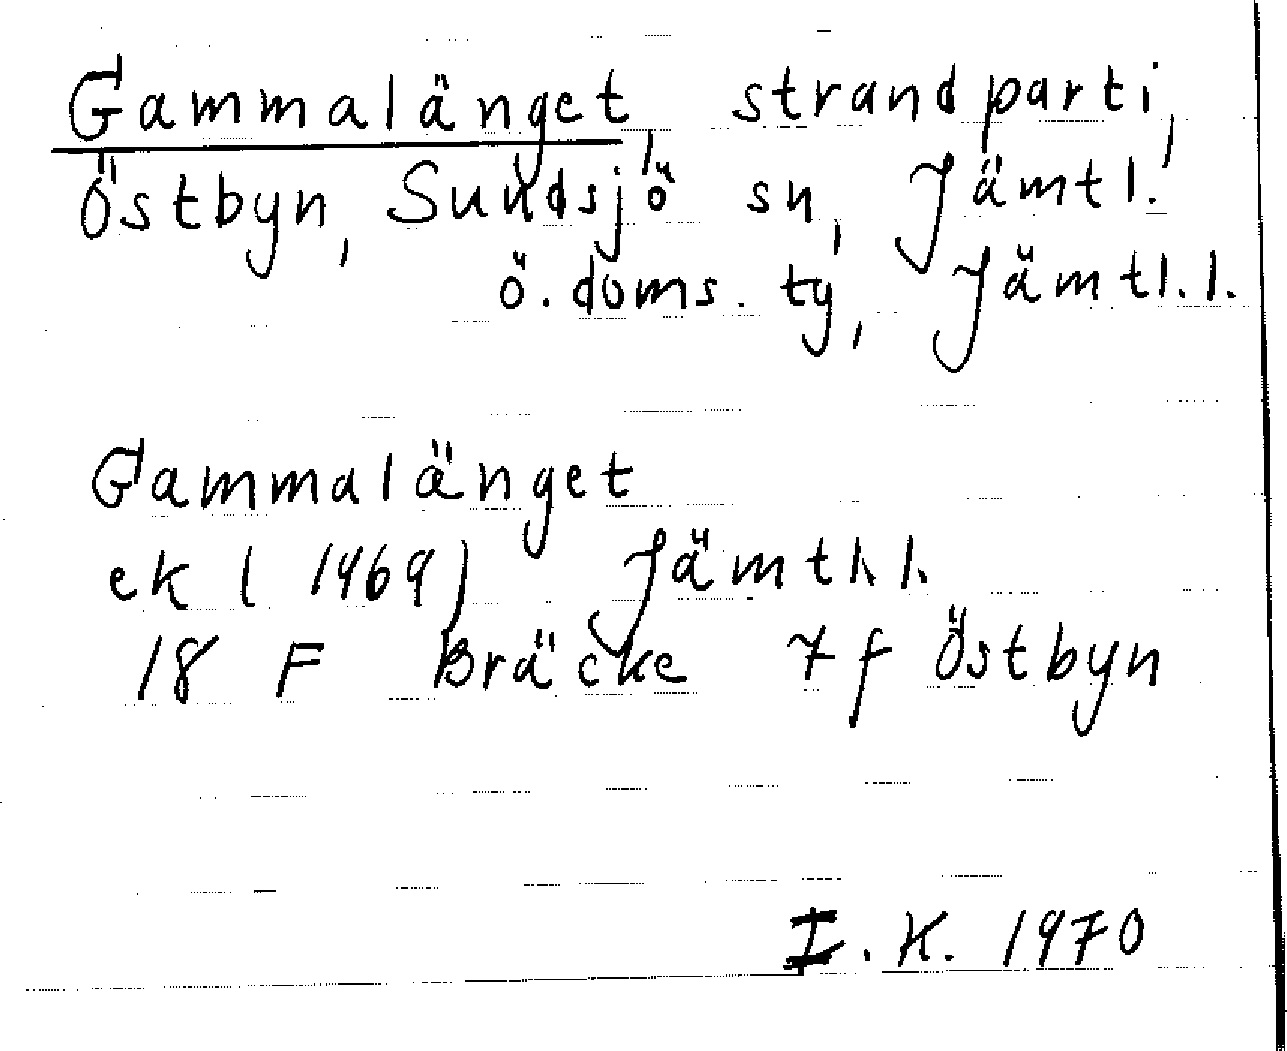 Gammalänget, strandparti,
Östbyn, Sundsjö sn, Jämtl.
ö. doms. ty, Jämtl. l.
Gammalänget
ek (1969) Jämtl. l.
18 F Bräcke 7 f Östbyn
I. K. 1970